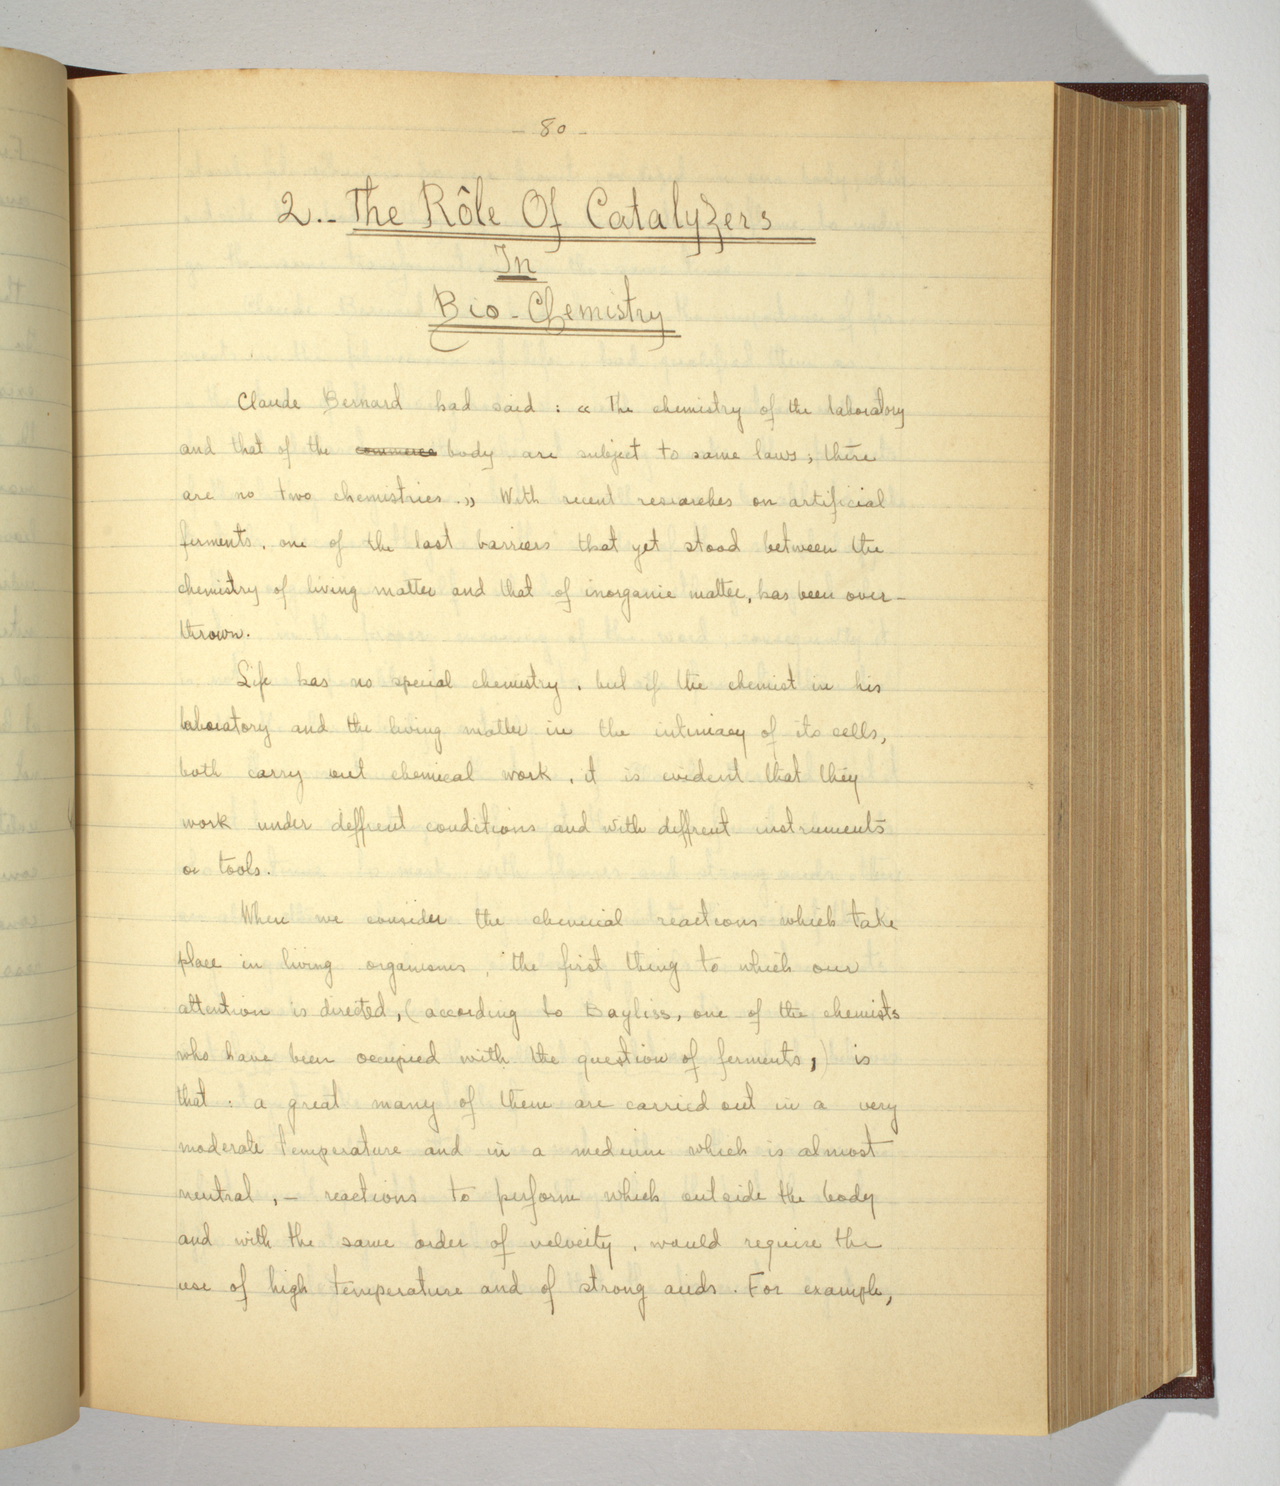 - 80 -
2.- The Rôle Of Catalyzers
In
Bio-Chemistry
Claude Bernard had said : « The chemistry of the laboratory
and that of the body are subject to same laws ; there
are no two chemistries .» With recent researches on artificial
ferments, one of the last barriers that yet stood between the
chemistry of living matter and that of inorganic matter, has been over-
thrown.
Life has no special chemistry, but if the chemist in his
laboratory and the living matter in the intimacy of its cells,
both carry out chemical work, it is evident that they
work under deffrent conditions and with diffrent instruments
or tools.
When we consider the chemical reactions which take
place in living organisms, the first thing to which our
attention is directed, (according to Bayliss, one of the chemists
who have been occupied with the question of ferments,) is
that : a great many of them are carried out in a very
moderate temperature and in a medium which is almost
neutral, - reactions to perform which outside the body
and with the same order of velocity, would require the
use of high temperature and of strong acids. For example,